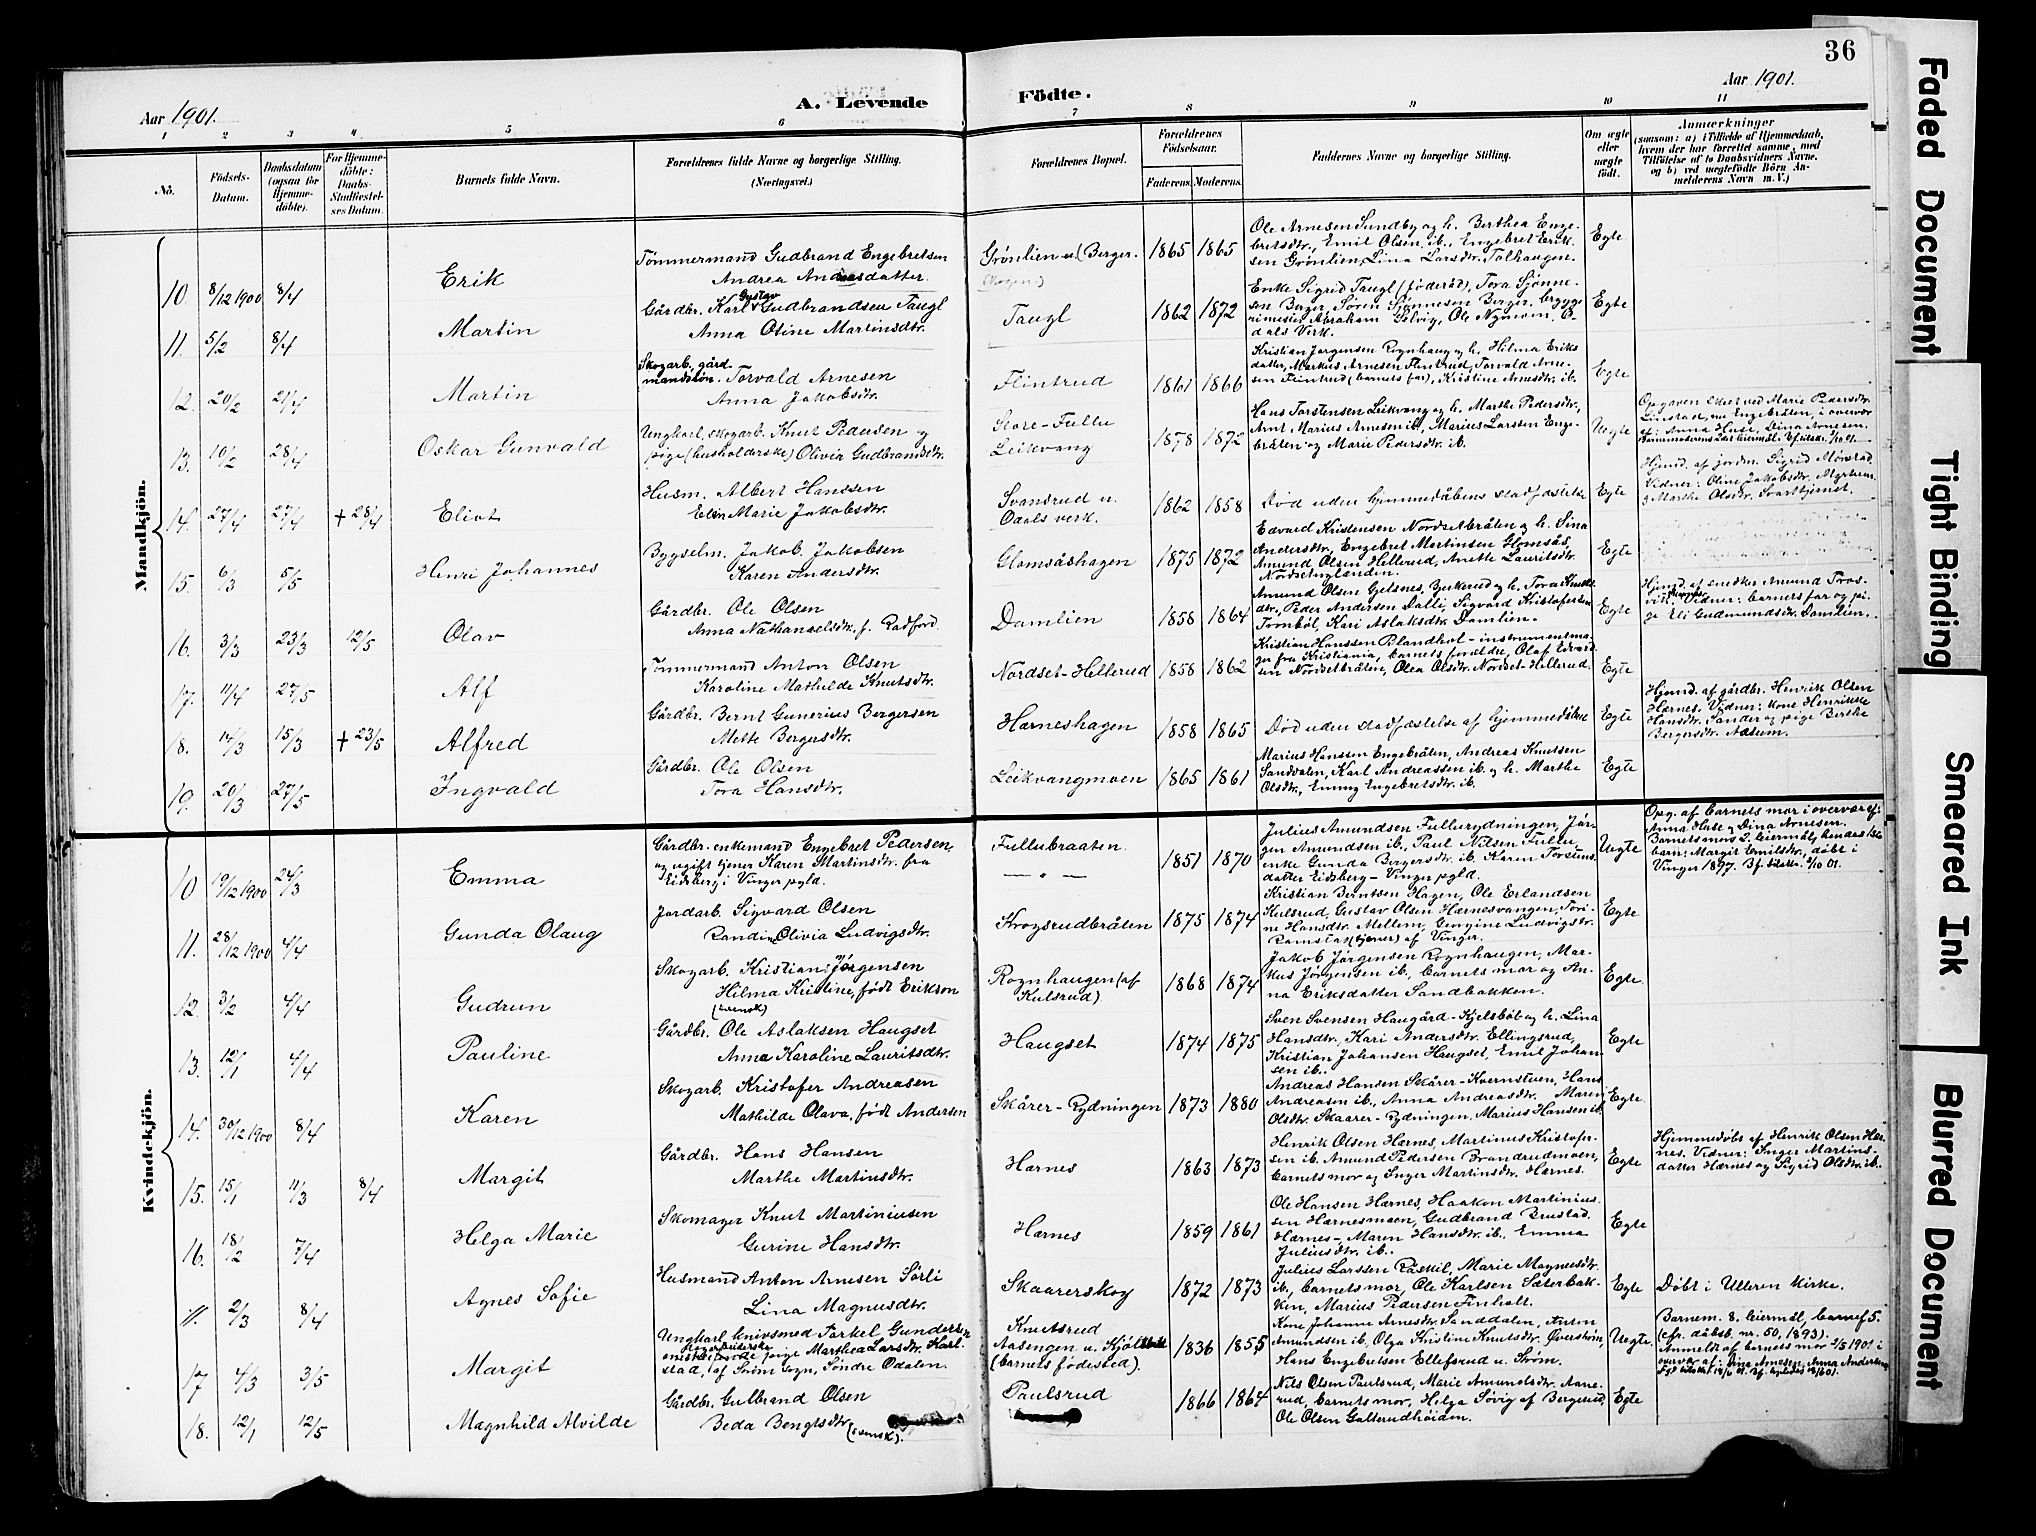 36
Aar 1901.
A. Levende
Födte.
Aar 1901.
1 2 3 4 5 6 7 8 9 10 11
No.
Födsels-
Datum.
Daabsdatum
(ogsaa för
Hjemme-
döbte).
For Hjemme-
döbte:
Daabs-
Stadfæstel-
ses Datum.
Barnets fulde Navn.
Forældrenes fulde Navne og borgerlige Stilling.
(Næringsvei.)
Forældrenes Bopæl.
Forældrenes
Födselsaar.
Faderens. Moderens.
Faddernes Navne og borgerlige Stilling.
Om ægte
eller
uægte
født.
Anmærkninger
(saasom: a) i Tilfælde af Hjemmedaab,
hvem der har forrettet samme, med
Tilföielse af to Daabsvidners Navne,
og b) ved uægtefödte Börn An-
melderens Navn m. V.)
Mandkjön.
10. 8/12 1900 8/4
Erik
Tømmermand Gudbrand Engebretsen
Andrea Andreasdatter
Grønlien u. (Berger-
skogen)
1865 1865
Ole Arnesen Sundby og h. Berthea Enge-
bretsdtr., Emil Olsen ib., Engebret Erik-
sen Grønlien, Lina Larsdtr. Tolhaugen.
Egte
11. 5/2 8/4
Martin
Gårdbr. Karl Gustav Gudbrandsen Taugl
Anna Otine Martinsdtr.
Taugl
1862 1872
Enke Sigrid Taugl (føderåd), Tora Sjønne-
sen Berger, Søren Sjønnesen Berger,
Abraham Solvig, Ole Nymoen, O-
dals Verk.
Egte
12. 20/2 21/4
Martin
Skogarb., gård-
mandssøn. Torvald Arnesen
Anna Jakobsdtr.
Flintrud
1861 1866
Kristian Jørgensen Rognhaug og h. Hilma Eriks
datter, Markus Arnesen Flintrud, Torvald Arne-
sen Flintrud (barnets far), Kristine Arnesdtr. ib.
Egte
13. 10/2 28/4
Oskar Gunvald
Ungkarl, skogarb. Knut Pedersen og
pige (husholderske) Olivia Gudbrandsdtr.
Store-Fullu
Leikvang
1878 1872
Hans Torstensen Leikvang og h. Marthe Pedersdtr.,
Arnt Marius Arnesen ib., Marius Larssen Enge-
bråten og Marie Pedersdtr. ib.
Uegte
Opgaven skeet ved Marie Pedersdtr.
Engebråten, i overvær
af: Anna Huse, Dina Arnesen.
14. 27/4 27/4 † 28/4
Eliot
Husm. Albert Hanssen
Elin Marie Jakobsdtr.
Svansrud u.
Odals verk.
1862 1858
Død uden hjemmedåbens stadfæstelse
Egte
Hjemd. af jordm. Sigrid Mønstad.
Vidner: Oline Jakobsdtr. Myrhem
og Marthe Olsdtr. Svarttjernet.
15. 6/3 5/5
Henri Johannes
Bygselm. Jakob Jakobsen
Karen Andersdtr.
Glomsåshagen
1875 1872
Edvard Kristensen Nordsetbråten og h. Lina
Andersdtr., Engebret Martinsen Glomsås,
Amund Olsen Hellerud, Anette Lauritsdtr.
Egte
16. 3/3 23/3 12/5
Olav
Gårdbr. Ole Olsen
Anna Nathanaelsdtr. f. Radford
Damlien
1858 1864
Amund Olsen Gjelsnes, Bjerkerud og h. Tora Knuts
dtr., Peder Andersen Dalli, Sigvard Kristofersen
Trombøl, Kari Aslaksdtr. Damlien.
Egte
Hjemd. af snedker Amund Tros-
vik. Vidner: barnets far og pi-
ge Eli Gudmundsdtr. Damlien.
17. 11/4 27/5
Alf
Tømmermand Anton Olsen
Karoline Mathilde Knutsdtr.
Nordset-Hellerud
1858 1862
Kristian Hanssen Blandhol - instrumentma-
ger fra Kristiania, barnets foreldre, Olaf Edvard
sen Nordsetbråten, Olea Olsdtr. Nordset-Hellerud.
Egte
18. 14/3 15/3 † 23/5
Alfred
Gårdbr. Bernt Gunerius Bergersen
Mette Bergersdtr.
Hærneshagen
1858 1865
Død uden stadfæstelse af hjemmedåben
Egte
Hjemd. af gårdbr. Henrik Olsen
Hærnes. Vidner: kone Henrikke
Hansdtr. Sander og pige Berthe
Bergersdtr. Aasum.
19. 20/3 27/5
Ingvald
Gårdbr. Ole Olsen
Tora Hansdtr.
Leikvangmoen
1865 1861
Marius Hanssen Engebråten, Andreas Knutsen
Sandvolen, Karl Andreassen ib. og h. Marthe
Olsdtr., Emmy Engebretsdtr. ib.
Egte
Kvindekjön.
10 19/12 1900 24/3
Emma
Gårdbr. enkemand Engebret Pedersen,
og ugift tjener Karen Martinsdtr. fra
Eidsberg i Vinger pgld.
Fullubraaten.
— " —
1851 1870
Julius Amundsen Fullurydningen, Jør-
gen Amundsen ib., Paul Nilsen Fullu,
enke Gunda Bergersdtr. ib. Karen Torstens
datter Eidsberg - Vinger pgld.
Uegte
Opg. af barnets mor i overvær af:
Anna Huse og Dina Arnesen.
Barnets mors 2. leiermål, hendes 1ste
barn: Margit Emilsdtr., døbt i
Vinger 1897. Bf. tilskr. 2/10 01.
11. 28/12 1900 4/4
Gunda Olaug
Jordarb. Sigvard Olsen
Randine Olivia Ludvigsdtr.
Krogsrudbråten
1875 1874
Kristian Berntsen Hagen, Ole Erlandsen
Kulsrud, Gustav Olsen Hærnesvangen, Tori-
ne Hansdtr. Mellem, Georgine Ludvigsdtr.
Ramstak (tjener) af Vinger.
Egte
12. 3/2 4/4
Gudrun
Skogarb. Kristian Jørgensen
Hilma Kristine, født Erikson
(svensk)
Rognhaugen (af
Kulsrud)
1868 1874
Jakob Jørgensen Rognhaugen, Mar-
kus Jørgensen ib., barnets mor og An-
na Eriksdatter Sandbakken.
Egte
13. 12/1 4/4
Pauline
Gårdbr. Ole Aslaksen Haugset
Anna Karoline Lauritsdtr.
Haugset
1874 1875
Sven Svensen Haugård-Kjelsbøl og h. Lina
Hansdtr., Kari Andersdtr. Ellingsrud,
Kristian Johansen Haugset, Emil Johan-
sen ib..
Egte
14. 30/12 1900 8/4
Karen
Skogarb. Kristofer Andreasen
Mathilde Olava, født Andersen
Skårer-Rydningen
1873 1880
Andreas Hansen Skårer-Kvernstuen, Hans
Andreasen ib., Anna Andreasdtr. Maren
Olsdtr. Skaarer-Rydningen, Marius Hansen ib.
Egte
15. 15/1 11/3 8/4
Margit
Gårdbr. Hans Hansen
Marthe Martinsdtr.
Hærnes
1863 1873
Henrik Olsen Hærnes, Martinus Kristofer-
sen ib. Amund Pedersen Brandrudmoen,
barnets mor og Inger Martinsdtr. Hærnes.
Egte
Hjemmedøbt af Henrik Olsen Hær-
nes. Vidner: Inger Martins-
datter Hærnes og Sigrid Olsdtr. ib.
16. 18/2 7/4
Helga Marie
Skomager Knut Martiniusen
Gurine Hansdtr.
Hærnes
1859 1861
Ole Hansen Hærnes, Haakon Martinius-
sen Hærnesmoen, Gudbrand Brustad.
Hærnes-, Maren Hansdtr. ib., Emma
Juliusdtr. ib..
Egte
2/3 8/4
Agnes Sofie
Husmand Anton Arnesen Sørli
Lina Magnusdtr.
Skaarerskog
1872 1873
Julius Larssen Råskil, Marie Magnusdtr.
ib., barnets mor, Ole Karlsen Sæterbak-
ken, Marius Pedersen Finholt.
Egte
Døbt i Ulleren kirke.
17 4/3 3/5
Margit
Ungkarl, knivsmed Torkel Gundersen
pige Marthea Larsdtr. Karl-
stad, (af Strøm sogn, Søndre Odalen.
Knutsrud
Aasengen u. Kjøl
(barnets fødested).
1836 1855
Kone Johanne Arnesdtr. Sanddalen, Anton
Amundsen ib. Olga Kristine Knutsdtr. Øverstrøm,
Hans Engebretsen Ellefsrud u. Strøm.
Uegte.
Barnem. 8. leiermål, barnef. 5.
(cfr. dåbsb. nr. 50, 1893).
Anmeldt af barnets mor 2/5 1901 i
overvær af: Dina Arnesen, Anna Andersen
18. 12/1 12/5
Magnhild Alvilde
Gårdbr. Gulbrand Olsen
Beda Bengtsdtr. (svensk).
Paulsrud
1866 1864
Nils Olsen Paulsrud, Marie Amundsdtr. Arne-
rud, barnets mor, Helga Søvig af Bergerud,
Ole Olsen Galterudhøiden.
Egte
Faded Document
Tight Binding
Smeared Ink
Blurred Document